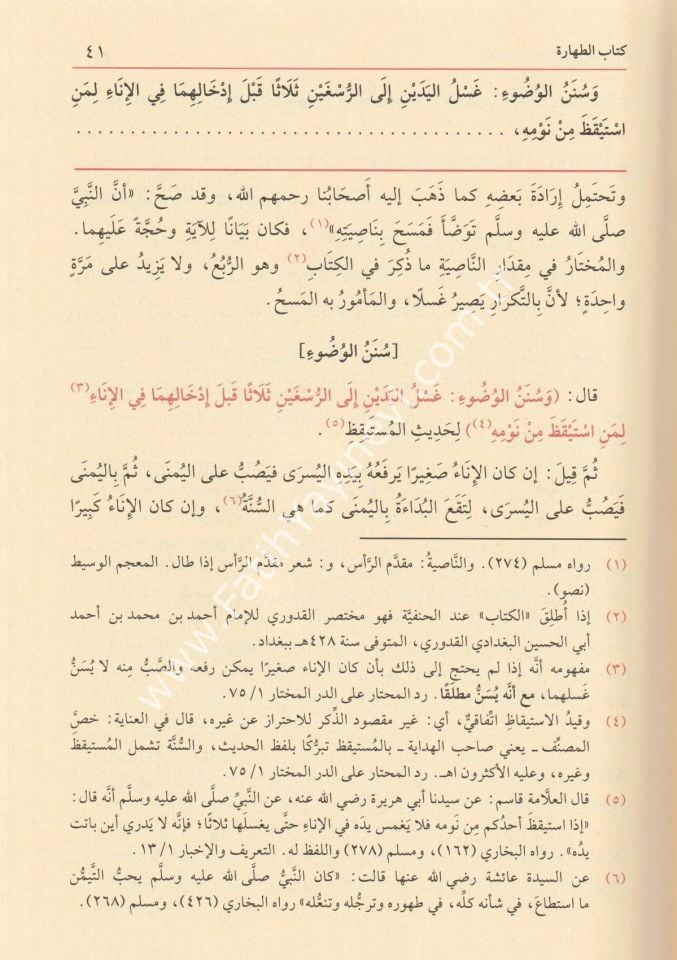 كتاب الطهارة ٤١
وَسُنَنُ الوُضُوءِ: غَسْلُ اليَدَيْنِ إِلَى الرُّسْغَيْنِ ثَلَاثًا قَبْلَ إِدْخَالِهِمَا فِي الإِنَاءِ لِمَنِ
اسْتَيْقَظَ مِنْ نَوْمِهِ، . . . . . . . . . . . . . . . . . . . . . . . . . . . . . . . . . . . . . . .
وتَحتَمِلُ إِرَادَةَ بَعضِهِ كما ذَهَبَ إليه أَصحَابُنا رحمهم الله، وقد صَحَّ: «أنَّ النَّبِيَّ
صلَّى الله عليه وسلَّم تَوَضَّأَ فَمَسَحَ بِنَاصِيَتِهِ»(١)، فكان بَيَانًا لِلآيَةِ وحُجَّةً عَلَيهِما.
والمُختَارُ في مِقدَارِ النَّاصِيَةِ ما ذُكِرَ في الكِتَابِ(٢) وهو الرُّبُعُ، ولا يَزِيدُ على مَرَّةٍ
واحِدَةٍ؛ لأنَّ بِالتَّكرَارِ يَصِيرُ غَسلًا، والمَأمُورُ به المَسحُ.
[سُنَنُ الوُضُوءِ]
قال: (وَسُنَنُ الوُضُوءِ: غَسْلُ اليَدَيْنِ إِلَى الرُّسْغَيْنِ ثَلَاثًا قَبلَ إِدْخَالِهِمَا فِي الإِنَاءِ(٣)
لِمَنِ اسْتَيْقَظَ مِنْ نَوْمِهِ(٤)) لِحَدِيثِ المُستَيقِظِ(٥).
ثُمَّ قِيلَ: إن كان الإِنَاءُ صَغِيرًا يَرفَعُهُ بِيَدِهِ اليُسرَى فيَصُبُّ على اليُمنَى، ثمَّ بِاليُمنَى
فيَصُبُّ على اليُسرَى، لِتَقَعَ البُدَاءَةُ بِاليُمنَى كما هي السُّنَّةُ(٦)، وإن كان الإِنَاءُ كَبِيرًا
(١) رواه مسلم (٢٧٤). والنَّاصيةُ: مقدَّم الرَّأس، و: شعر مقدَّم الرَّأس إذا طال. المعجم الوسيط
(نصو).
(٢) إذا أُطلِقَ «الكتاب» عند الحنفيَّة فهو مختصر القدوري للإمام أحمد بن محمد بن أحمد
أبي الحسين البغدادي القدوري، المتوفى سنة ٤٢٨هـ ببغداد.
(٣) مفهومه أنَّه إذا لم يحتج إلى ذلك بأن كان الإناء صغيرًا يمكن رفعه والصَّبُّ منه لا يُسَنُّ
غَسلهما، مع أنَّه يُسَنُّ مطلقًا. رد المحتار على الدر المختار ١/ ٧٥.
(٤) وقيدُ الاستيقاظِ اتِّفاقيٌّ، أي: غير مقصود الذِّكر للاحتراز عن غيره، قال في العناية: خصَّ
المصنِّف ـ يعني صاحب الهداية ـ بالمُستيقظ تبرُّكًا بلفظ الحديث، والسُّنَّة تشمل المُستيقظ
وغيره، وعليه الأكثرون اهـ. رد المحتار على الدر المختار ١/ ٧٥.
(٥) قال العلَّامة قاسم: عن سيدنا أبي هريرة رضي الله عنه، عن النَّبيِّ صلَّى الله عليه وسلَّم أنَّه قال:
«إذا استيقظ أحدُكم مِن نَومه فلا يَغمس يدَه في الإناء حتَّى يغسلَها ثلاثًا؛ فإنَّه لا يَدري أين باتت
يدُه». رواه البخاري (١٦٢)، ومسلم (٢٧٨) واللفظ له. التعريف والإخبار ١/ ١٣.
(٦) عن السيدة عائشة رضي الله عنها قالت: «كان النَّبيُّ صلَّى الله عليه وسلَّم يحبُّ التَّيمُّن
ما استطاعَ، في شأنه كلِّه، في طهوره وترجُّله وتنعُّله» رواه البخاري (٤٢٦)، ومسلم (٢٦٨).
www.Fatihyayinevi.com.tr